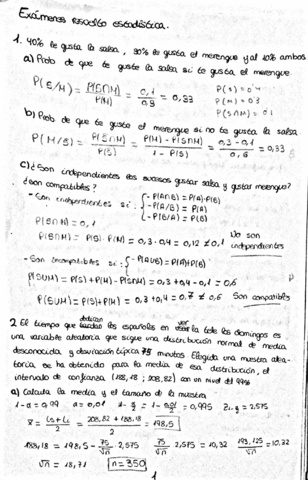 Exámenes resuelto estadística.
1. 40% le gusta la salsa, 30% le gusta el merengue y al 10% ambos
a) Prob de que te guste la salsa si te gusta el merengue
P(S/M) = P(S∩M)/P(M) = 0,1/0,3 = 0,33
P(S) = 0'4
P(M) = 0'3
P(S∩M) = 0'1
b) Prob de que te guste el merengue si no te gusta la salsa
P(M/S̄) = P(S̄∩M)/P(S̄) = P(M) - P(S∩M)/1 - P(S) = 0,3 - 0,1/0,6 = 0,33
c) ¿Son independientes los sucesos gustar salsa y gustar merengue?
¿son compatibles?
- Son independientes si: { - P(A∩B) = P(A)·P(B)
- P(A/B) = P(A)
- P(B/A) = P(B)
P(S∩M) = 0,1
P(S∩M) = P(S)·P(M) = 0,3·0,4 = 0,12 ≠ 0,1 No son independientes
- Son incompatibles si: { - P(A∪B) = P(A)+P(B)
P(S∪M) = P(S) + P(M) - P(S∩M) = 0,3 + 0,4 - 0,1 = 0,6
P(S∪M) = P(S) + P(M) = 0,3 + 0,4 = 0,7 ≠ 0,6 Son compatibles
2 El tiempo que dedican los españoles en ver la tele los domingos es
una variable aleatoria que sigue una distribución normal de media
desconocida, y desviación típica 75 minutos Elegida una muestra alea-
toria se ha obtenido para la media de esa distribución, el
intervalo de confianza (188,18; 208,82) con un nivel del 99%
a) Calcula la media y el tamaño de la muestra
1-α = 0,99 α = 0,01 1-α/2 = 1-0,01/2 = 0,995 Z1-α/2 = 2,575
x̄ = Li+Ls/2 = 208,82 + 188,18/2 = 198,5
188,18 = 198,5 - 75/√n · 2,575 75/√n · 2,575 = 10,32 193,125/√n = 10,32
√n = 18,71 n = 350
1